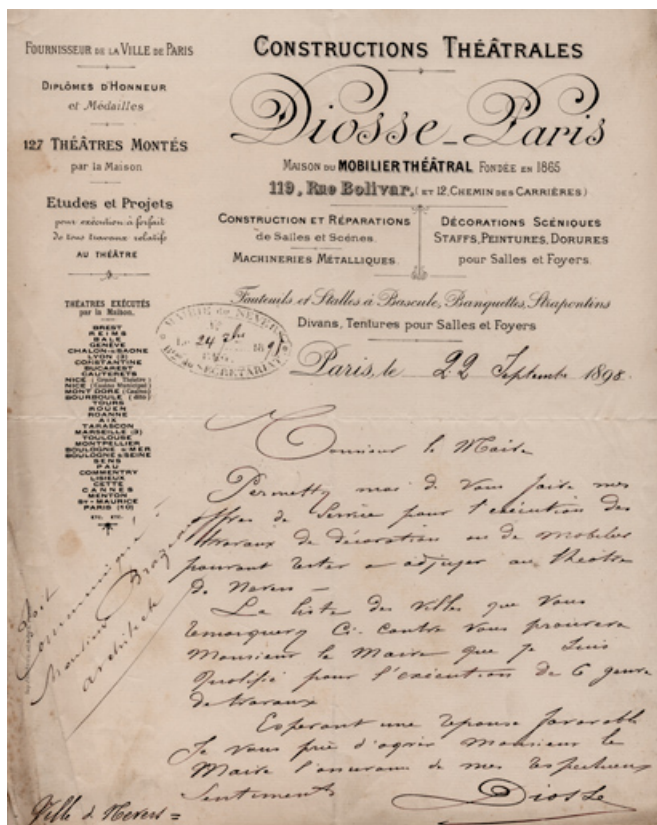 FOURNISSEUR DE LA VILLE DE PARIS
DIPLÔMES D'HONNEUR
et Médailles
127 THÉÂTRES MONTÉS
par la Maison
Etudes et Projets
pour exécution à forfait
de tous travaux relatifs
AU THÉÂTRE
THÉATRES EXÉCUTÉS
par la Maison.
BREST
REIMS
BALE
GENÈVE
CHALON-s-SAONE
LYON (2)
CONSTANTINE
BUCAREST
CAUTERETS
NICE (Grand Théâtre)
NICE (Casino Municipal)
MONT DORE (Casino)
BOURBOULE (dito)
TOURS
ROUEN
ROANNE
AIX
TARASCON
MARSEILLE (3)
TOULOUSE
MONTPELLIER
BOULOGNE s/MER
BOULOGNE s/SEINE
SENS
PAU
COMMENTRY
LISIEUX
CETTE
CANNES
MENTON
ST-MAURICE
PARIS (10)
ETC. ETC.
CONSTRUCTIONS THÉÂTRALES
Diosse-Paris
MAISON DU MOBILIER THÉÂTRAL FONDÉE EN 1865
119, Rue Bolivar, (ET 12, CHEMIN DES CARRIÈRES)
CONSTRUCTION ET RÉPARATIONS
de Salles et Scènes.
MACHINERIES MÉTALLIQUES.
DÉCORATIONS SCÉNIQUES
STAFFS, PEINTURES, DORURES
pour Salles et Foyers.
Fauteuils et Stalles à Bascule, Banquettes, Strapontins
Divans, Tentures pour Salles et Foyers
MAIRIE de NEVERS
24 7bre 1898
SECRÉTARIAT
Paris, le 22 Septembre 1898.
Monsieur le Maire
Permettez moi de vous faire mes
offres de Service pour l'exécution des
travaux de décoration ou de mobilier
pouvant rester a adjuger au théâtre
de Nevers —
La liste des villes que vous
remarquerez Ci-contre vous prouvera
Monsieur le Maire que je suis
qualifié pour l'exécution de ce genre
de travaux
Esperant une reponse favorable
Je vous prie d'agréer Monsieur le
Maire l'assurance de mes respectueux
Sentiments
Diosse
Communiqué à
Monsieur
architecte
Ville de Nevers =